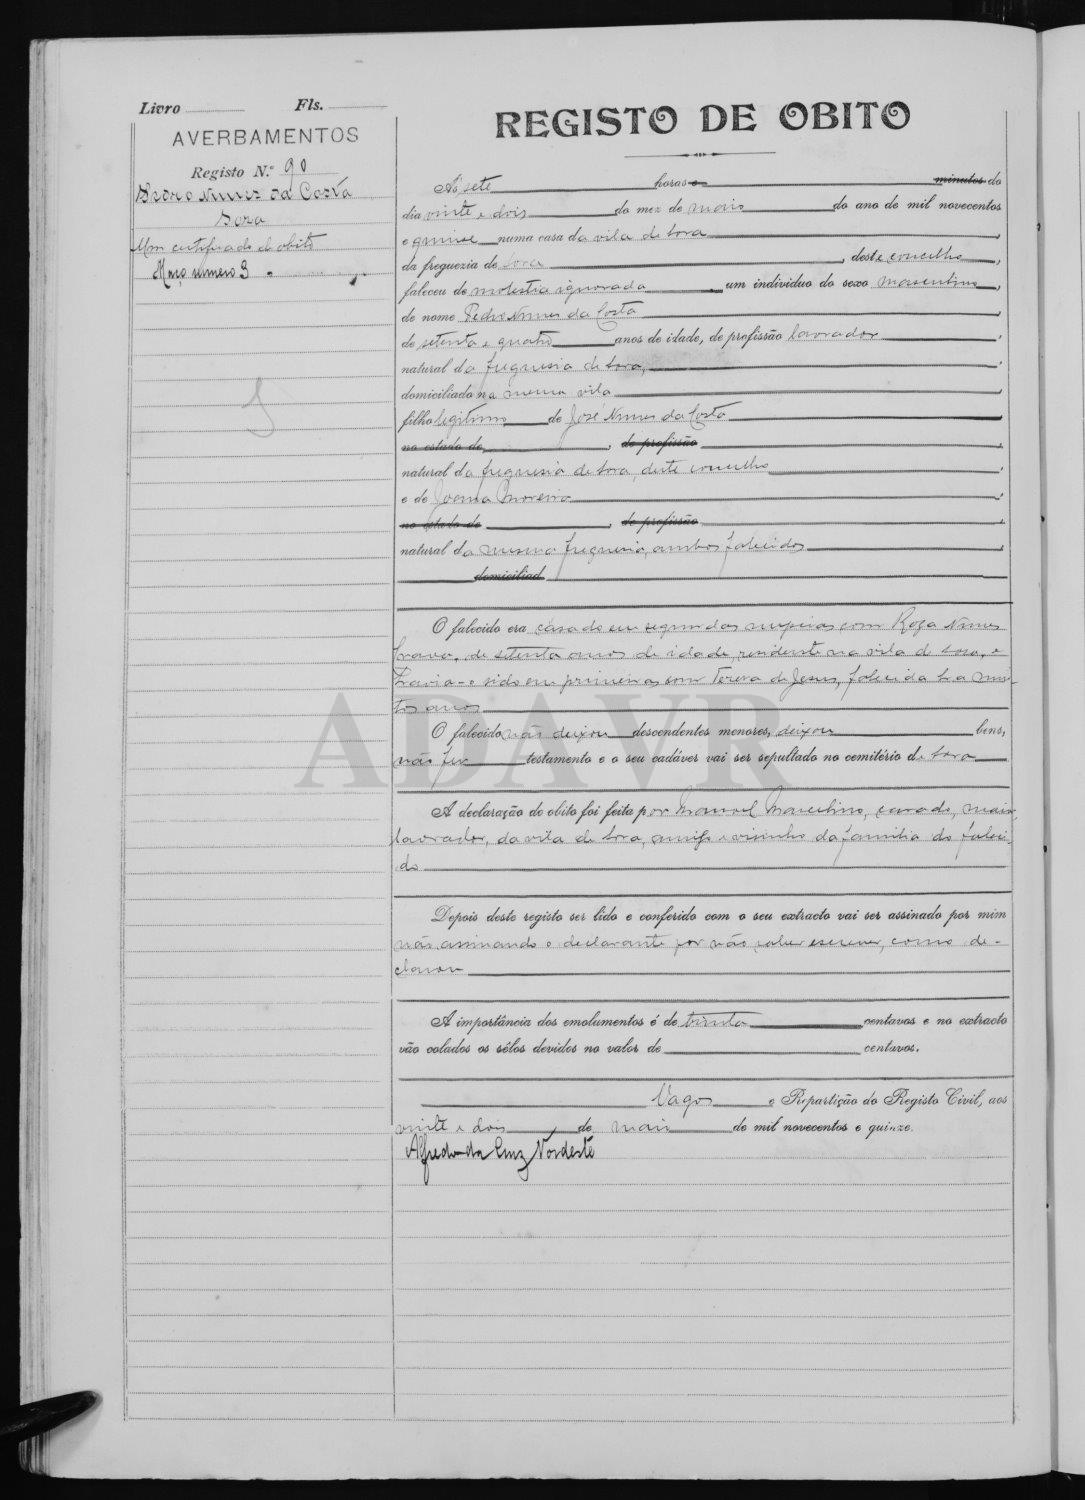 Livro Fls.
AVERBAMENTOS
Registo N.º 90
Pedro Nunes da Costa
Soza
Um certificado de obito
Maço numero 3
REGISTO DE OBITO
Ás sete horas e minutos do
dia vinte e dois do mez de maio do ano de mil novecentos
e quinze numa casa da vila de Soza
da freguezia de Soza, deste concelho,
faleceu de molestia ignorada um individuo do sexo masculino,
de nome Pedro Nunes da Costa
de setenta e quatro anos de idade, de profissão lavrador,
natural da freguesia de Soza,
domiciliado na mesma vila
filho legitimo de José Nunes da Costa
no estado de, de profissão
natural da freguesia de Soza, deste concelho
e de Joana Moreira
no estado de, de profissão
natural da mesma freguesia, ambos falecidos
domiciliad
O falecido era casado em segundas nupcias com Roza Nunes
de setenta anos de idade, residente na vila de Soza, e
havia-o sido em primeiras com Tereza de Jesus, falecida ha mui-
tos anos
O falecido não deixou descendentes menores, deixou bens,
não fez testamento e o seu cadáver vai ser sepultado no cemitério de Soza
A declaração de obito foi feita por Manoel Marcelino, casado, maior,
lavrador, da vila de Soza, amigo e visinho da familia do faleci-
do
Depois deste registo ser lido e conferido com o seu extracto vai ser assinado por mim
não assinando o declarante por não saber escrever, como de-
clarou
A importância dos emolumentos é de trinta centavos e no extracto
vão colados os sêlos devidos no valor de centavos.
Vagos e Repartição do Registo Civil, aos
vinte e dois de maio de mil novecentos e quinze.
Alfredo da Cruz Nordeste
ADAVR